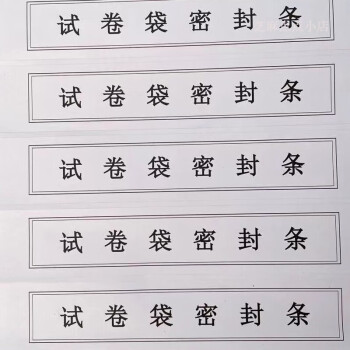 试卷袋密封条
试卷袋密封条
试卷袋密封条
试卷袋密封条
试卷袋密封条